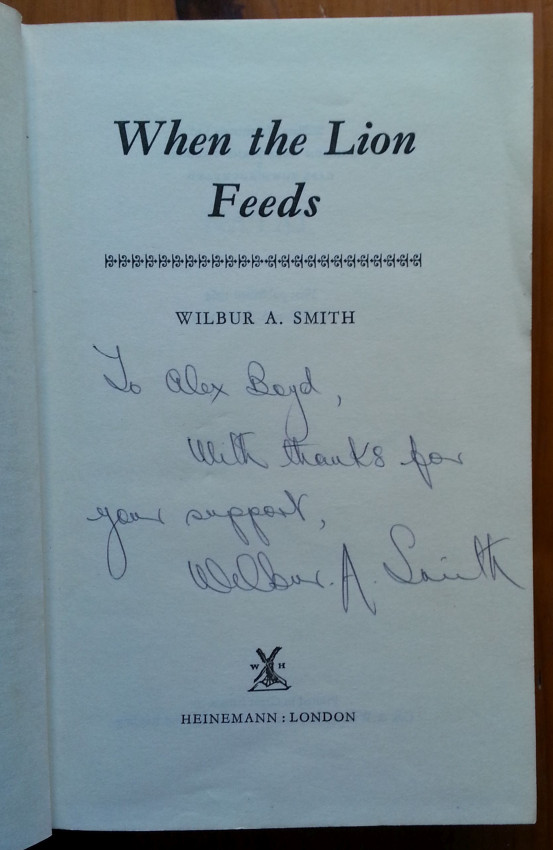 When the Lion
Feeds
WILBUR A. SMITH
To Alex Boyd,
With thanks for
your support,
Wilbur. A. Smith
W H
HEINEMANN : LONDON